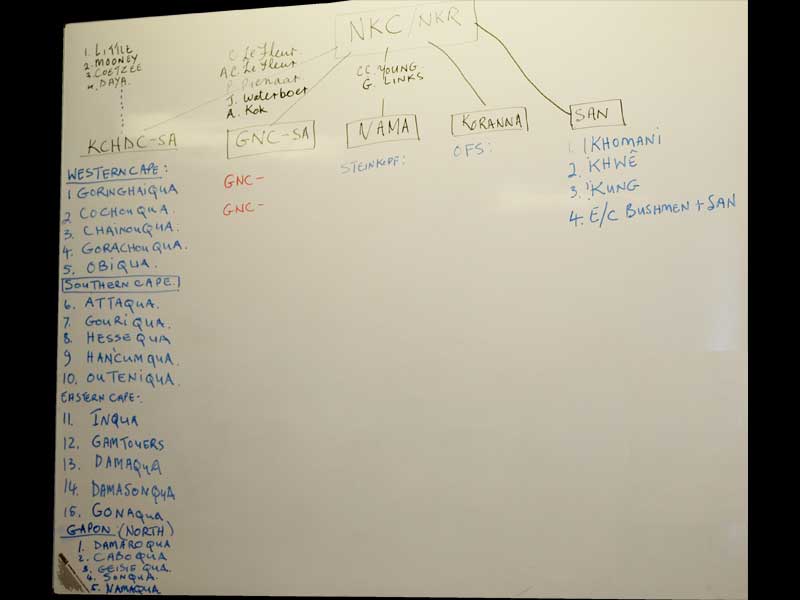 NKC/NKR
1. LITTLE
2. MOONEY
3. COETZEE
4. DAYA.
C. Le Fleur
A.C. Le Fleur
P. Pienaar
J. Waterboer
A. Kok
CC. YOUNG
G. LINKS
KCHDC-SA
GNC-SA
NAMA
KORANNA
SAN
WESTERN CAPE:
1 GORINGHAIQUA
2 COCHOUQUA.
3. CHAINOUQUA.
4. GORACHOUQUA.
5. OBIQUA.
SOUTHERN CAPE.
6. ATTAQUA.
7. GOURIQUA.
8. HESSEQUA
9 HANCUMQUA.
10. OUTENIQUA.
EASTERN CAPE:
11. INQUA
12. GAMTOUERS
13. DAMAQUA
14. DAMASONQUA
15. GONAQUA
GAPON: (NORTH)
1. DAMAROQUA
2. CABOQUA
3. GEISIEQUA.
4. SONQUA.
5. NAMAQUA
GNC-
GNC-
STEINKOPF:
OFS:
1. ǀKHOMANI
2. KHWÊ
3. !KUNG
4. E/C BUSHMEN + SAN